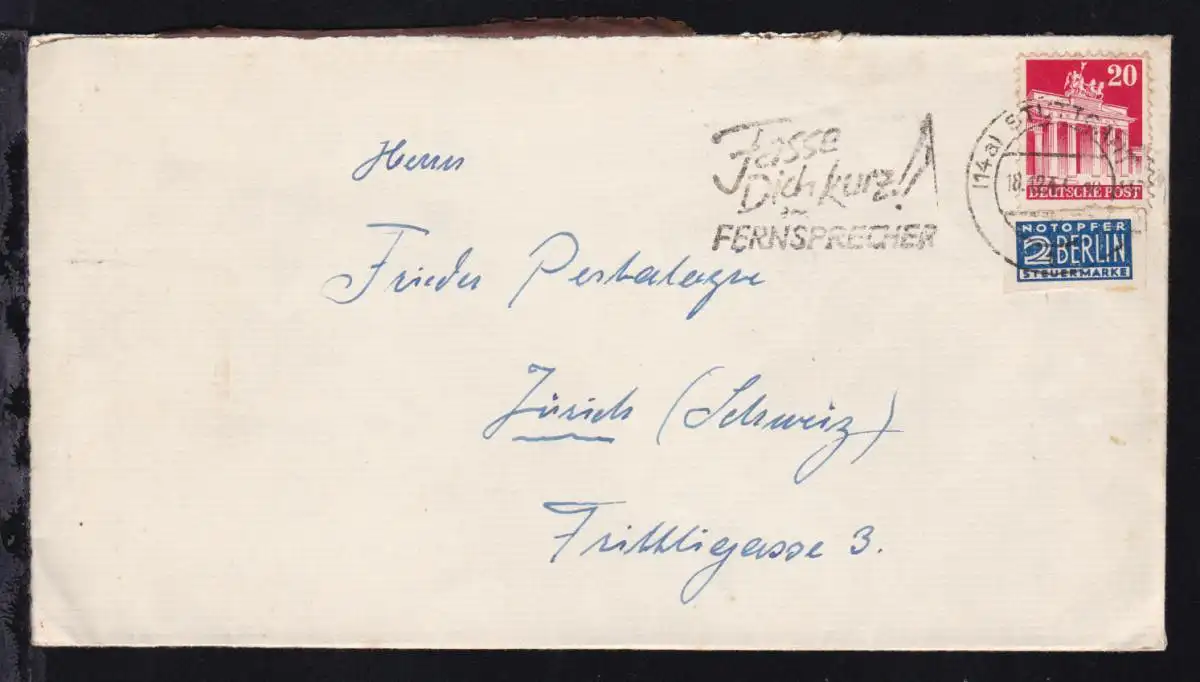 20
DEUTSCHE POST
Fasse
Dich kurz!
am
FERNSPRECHER
(14a) STUTTGART
18.12.4
NOTOPFER
2 BERLIN
STEUERMARKE
Herrn
Frieder Pestalozzi
Zürich (Schweiz)
Trittligasse 3.